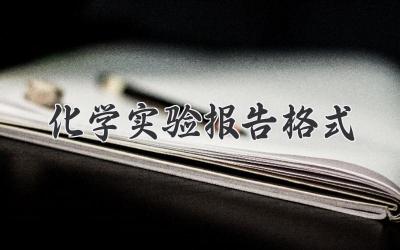 化学实验报告格式